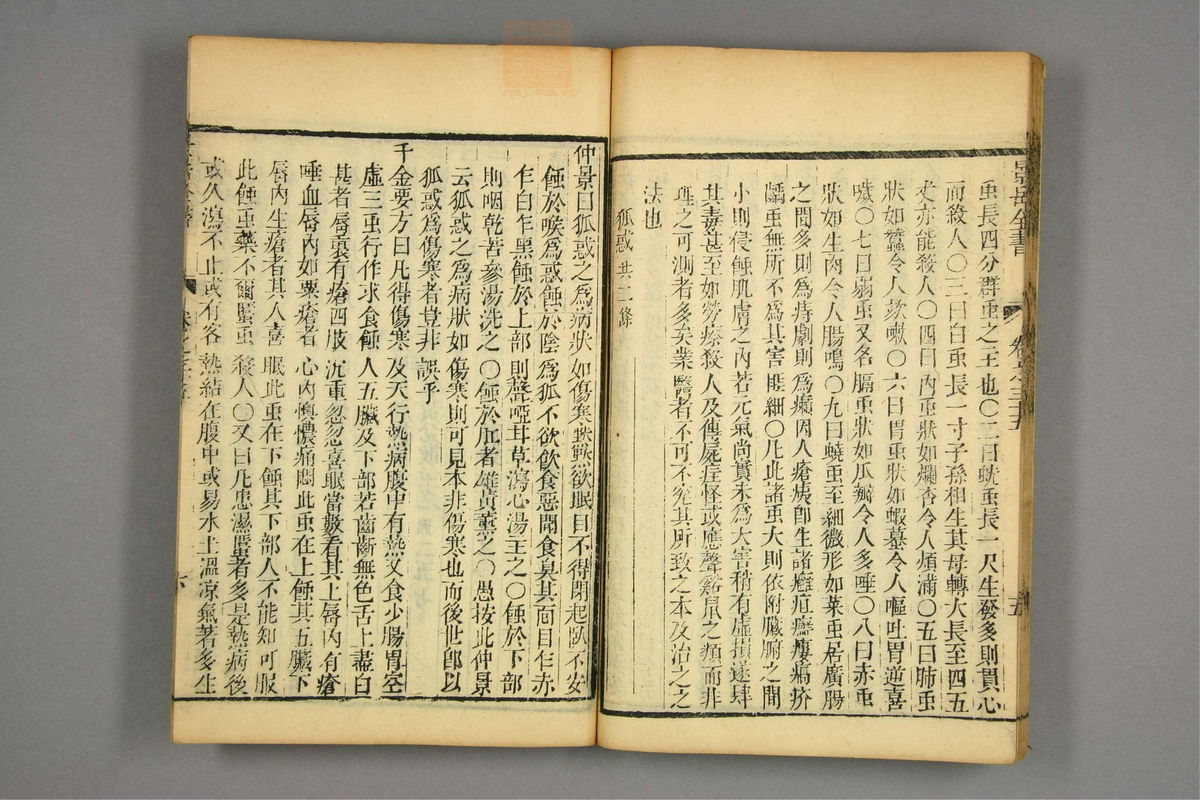 虫長四分群虫之主也〇二曰蚘虫長一尺生發多則貫心
而殺人〇三曰白虫長一寸子孫相生其母轉大長至四五
丈亦能殺人〇四曰肉虫狀如爛杏令人煩滿〇五曰肺虫
狀如蠶令人欬嗽〇六曰胃虫狀如蝦蟇令人嘔吐胃逆喜
噦〇七曰弱虫又名膈虫狀如瓜瓣令人多唾〇八曰赤虫
狀如生肉令人腸鳴〇九曰蟯虫至細微形如菜虫居廣腸
之間多則為痔劇則為癩因人瘡痍卽生諸癰疽癬瘻瘑疥
齲虫無所不為其害匪細〇凡此諸虫大則依附臟腑之間
小則侵蝕肌膚之內若元氣尚實未為大害稍有虛損遂肆
其毒甚至如勞瘵殺人及傳屍疰怪或應聲谿鼠之類而非
理之可測者多矣業醫者不可不究其所致之本及治之之
法也
狐惑共二條
景岳全書
卷之三十五
五
仲景曰狐惑之為病狀如傷寒默默欲眠目不得閉起臥不安
蝕於喉為惑蝕於陰為狐不欲飲食惡聞食臭其面目乍赤
乍白乍黑蝕於上部則聲啞甘草瀉心湯主之〇蝕於下部
則咽乾苦參湯洗之〇蝕於肛者雄黃薰之〇愚按此仲景
云狐惑之為病狀如傷寒則可見本非傷寒也而後世卽以
狐惑為傷寒者豈非誤乎
千金要方曰凡得傷寒及天行熱病腹中有熱又食少腸胃空
虛三虫行作求食蝕人五臟及下部若齒齗無色舌上盡白
甚者唇裏有瘡四肢沉重忽忽喜眠當數看其上唇內有瘡
唾血唇內如粟瘡者心內懊憹痛悶此虫在上蝕其五臟下
唇內生瘡者其人喜眠此虫在下蝕其下部人不能知可服
此蝕虫藥不爾䘌虫殺人〇又曰凡患濕䘌者多是熱病後
或久瀉不止或有客熱結在腹中或易水土溫凉氣著多生
六